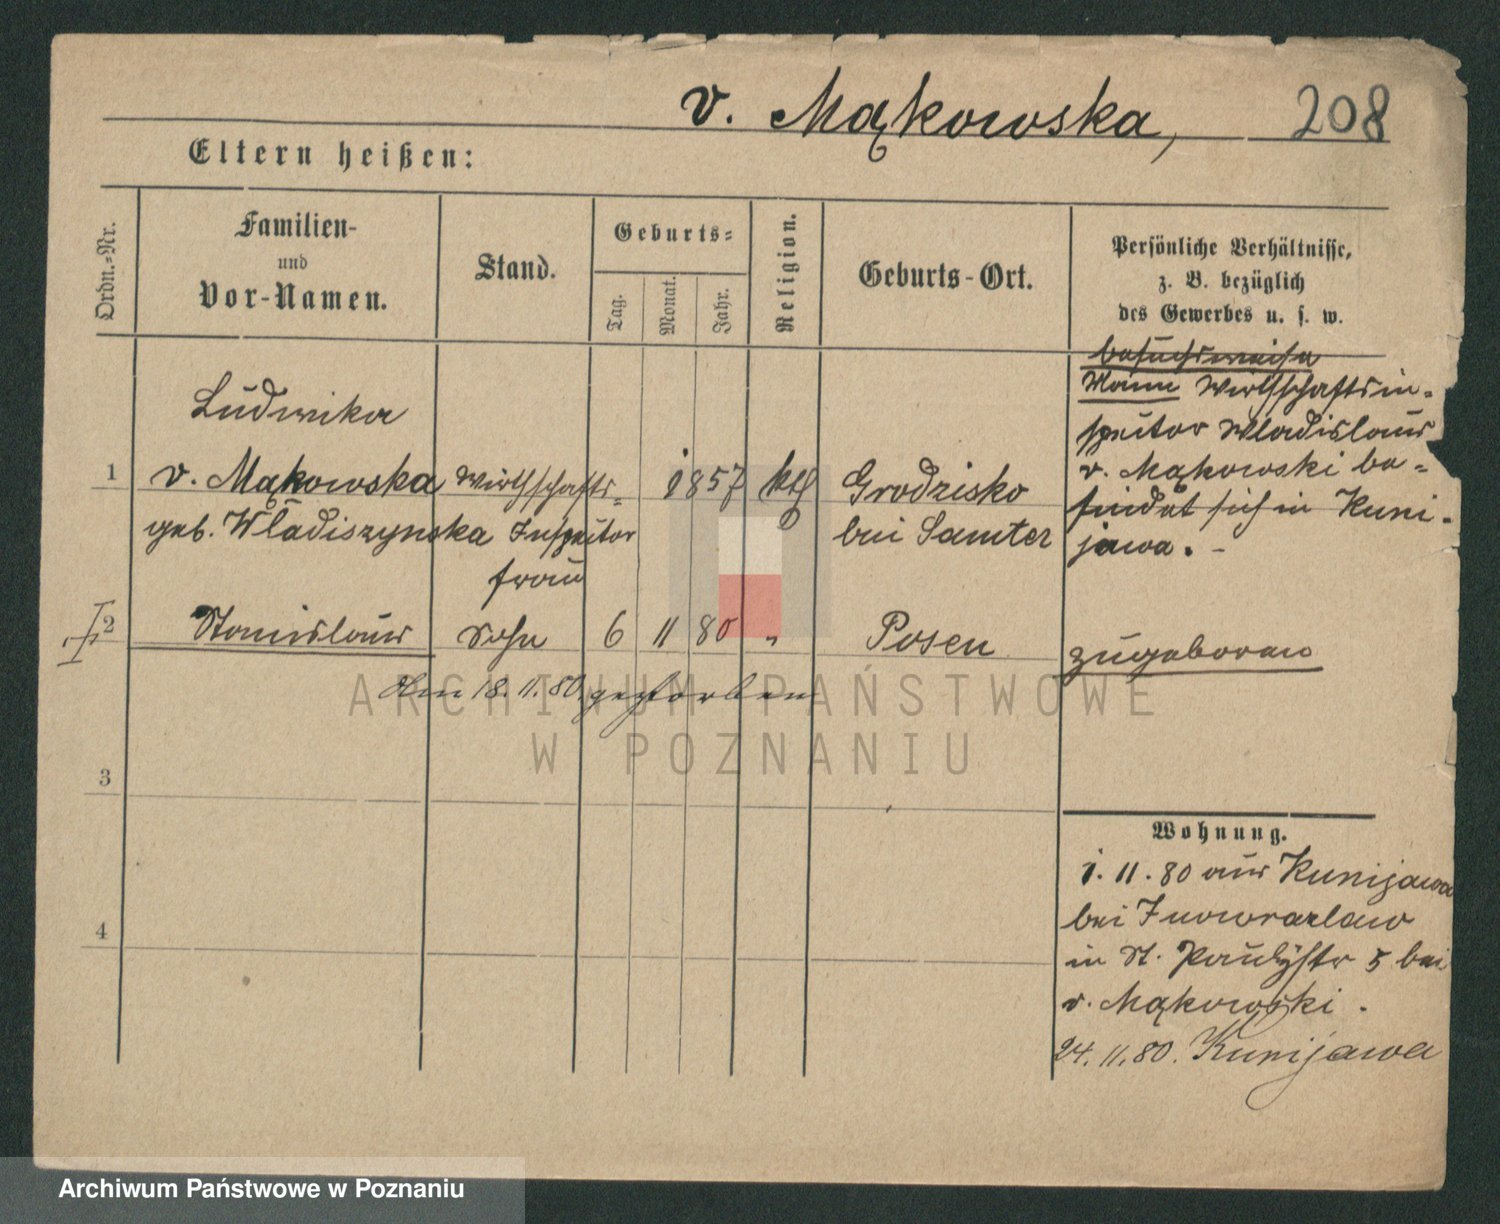 v. Mąkowska, 208
Eltern heißen:
Ordn.-Nr.
Familien-
und
Vor-Namen.
Stand.
Geburts=
Tag.
Monat.
Jahr.
Religion.
Geburts-Ort.
Persönliche Verhältnisse,
z. B. bezüglich
des Gewerbes u. s. w.
besuchsweise
Mann Wirthschaftsin-
spector Wladislaus
v. Mąkowski be-
findet sich in Kuni-
jawa. -
Ludwika
1 v. Mąkowska Wirthschafts- 1857 kth Grodzisko
geb. Wladiszynska Inspector bei Samter
frau
2 Stanislaus Sohn 6 11 80 " Posen zugeboren
Am 18. 11. 80. gestorben
3
4
Wohnung.
1. 11. 80 aus Kunijawa
bei Inowrazlaw
in St. Paulystr 5 bei
v. Mąkowski.
24. 11. 80. Kunijawa
ARCHIWUM PAŃSTWOWE
W POZNANIU
Archiwum Państwowe w Poznaniu